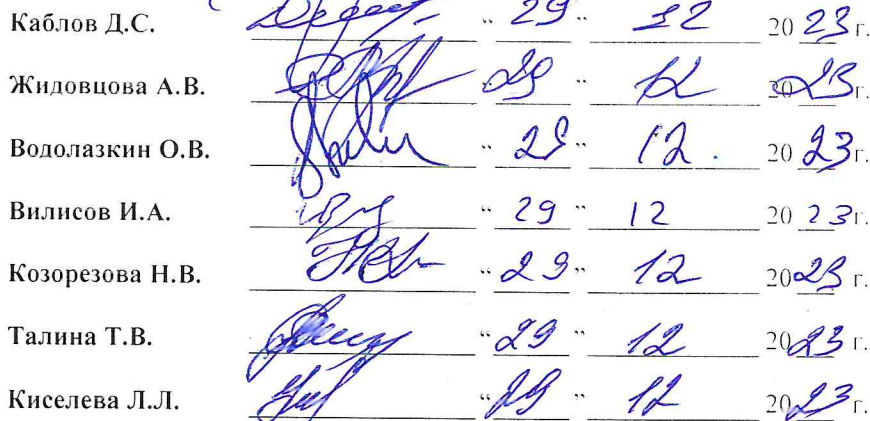 Каблов Д.С. “ 29 ” 12 20 23 г.
Жидовцова А.В. 29 ” 12 20 23 г.
Водолазкин О.В. “ 29 ” 12 . 20 23 г.
Вилисов И.А. “ 29 ” 12 20 23 г.
Козорезова Н.В. “ 29 ” 12 20 23 г.
Талина Т.В. “ 29 ” 12 20 23 г.
Киселева Л.Л. “ 29 ” 12 20 23 г.